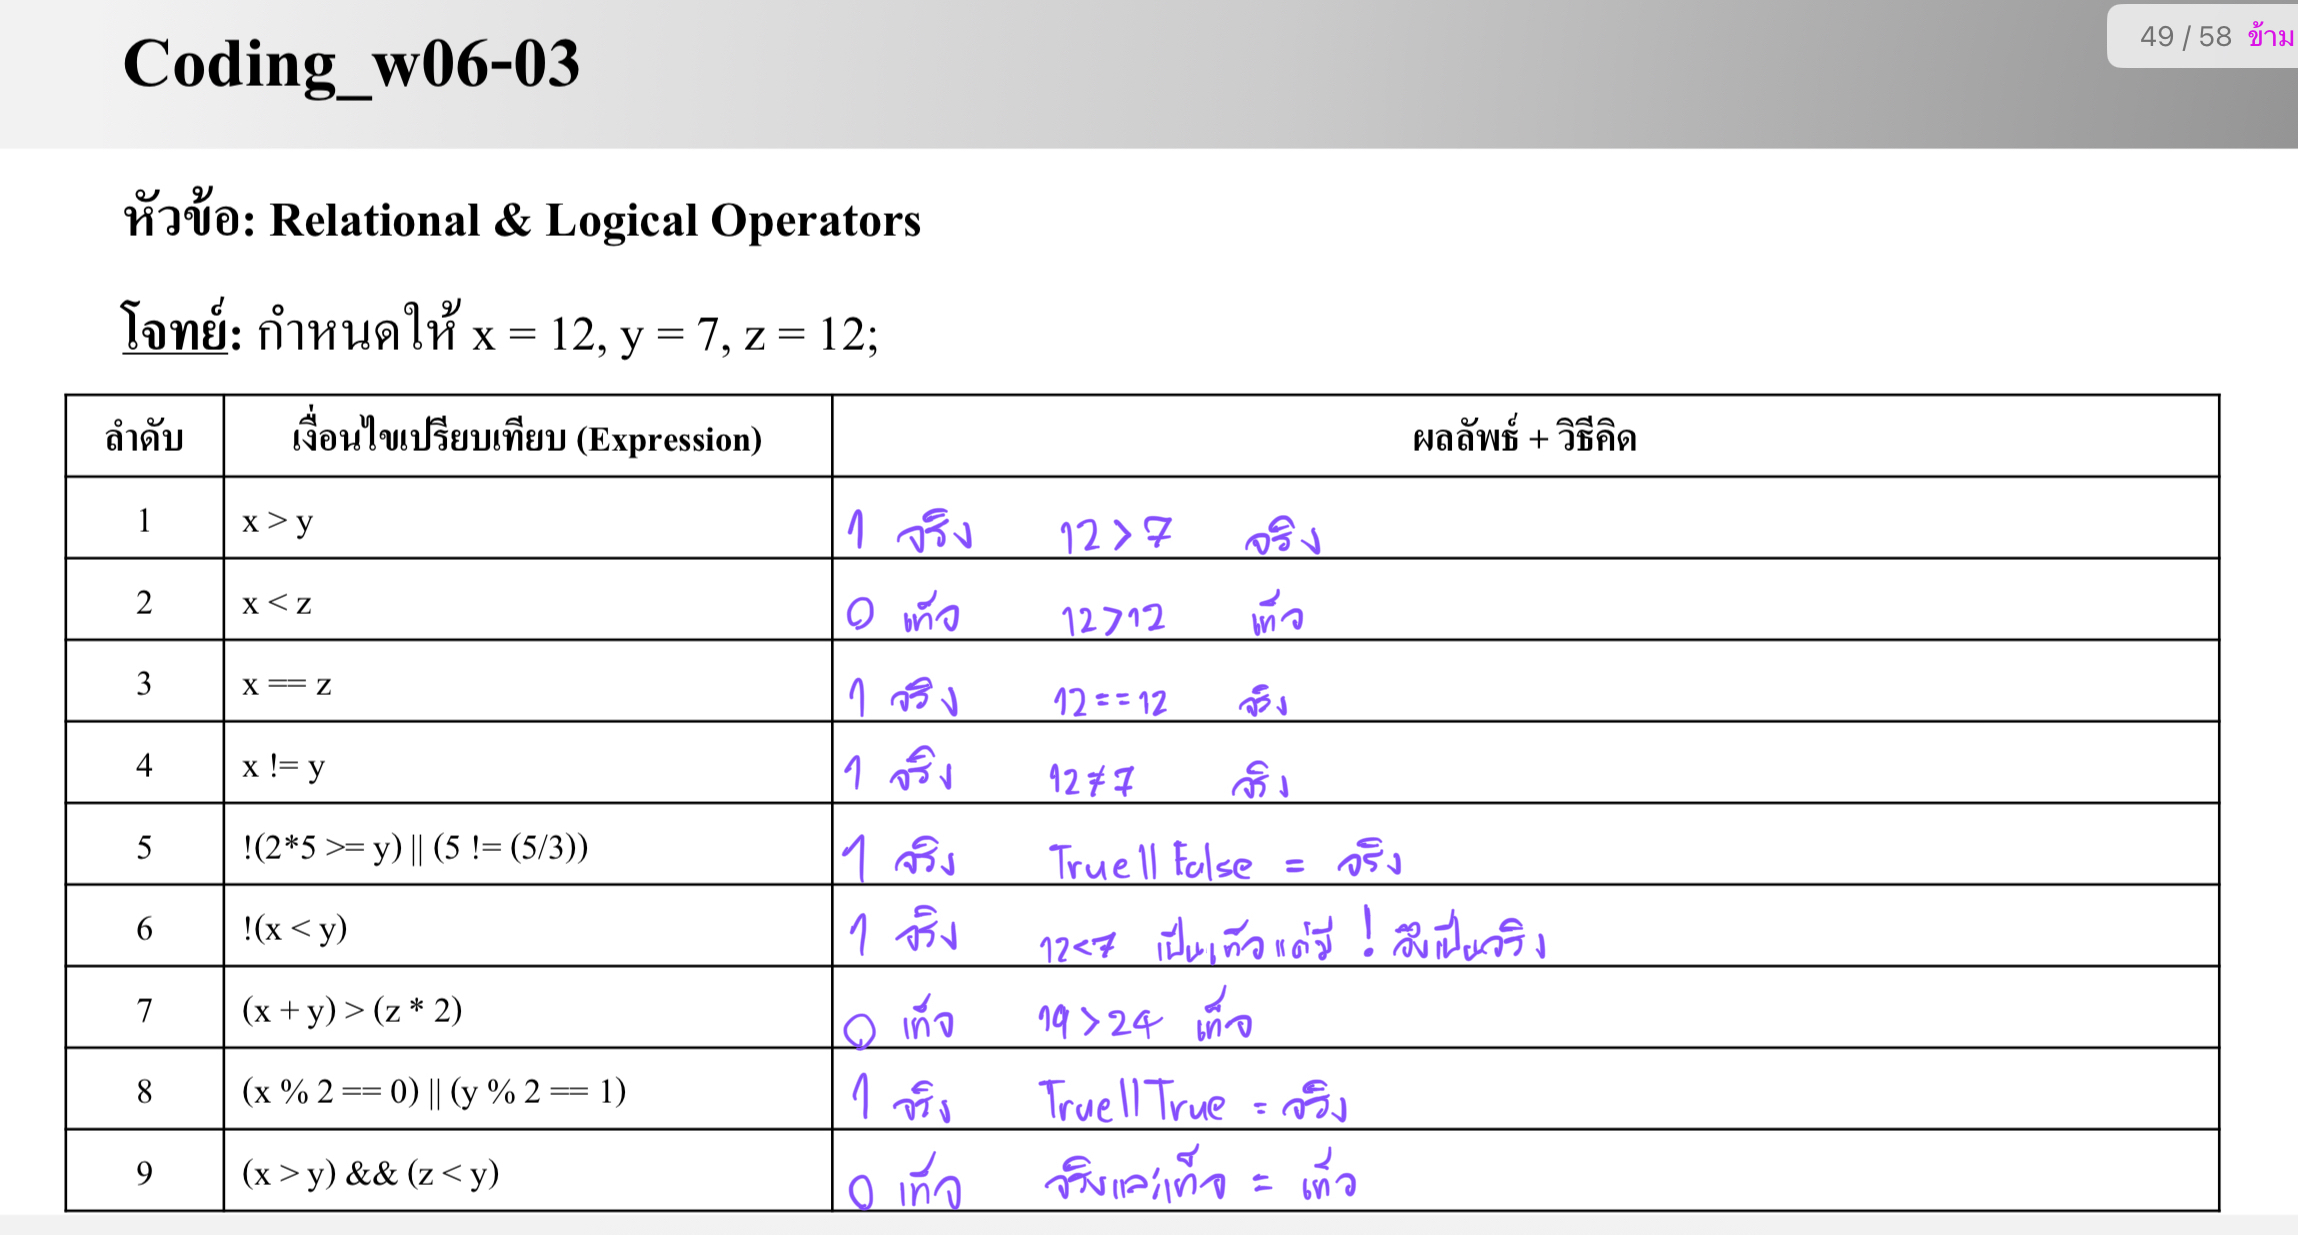 Coding_w06-03
49 / 58 ข้าม
หัวข้อ: Relational & Logical Operators
โจทย์: กำหนดให้ x = 12, y = 7, z = 12;
ลำดับ เงื่อนไขเปรียบเทียบ (Expression) ผลลัพธ์ + วิธีคิด
1 x > y 1 จริง 12>7 จริง
2 x < z 0 เท็จ 12>12 เท็จ
3 x == z 1 จริง 12==12 จริง
4 x != y 1 จริง 12≠7 จริง
5 !(2*5 >= y) || (5 != (5/3)) 1 จริง True || False = จริง
6 !(x < y) 1 จริง 12<7 เป็นเท็จแต่มี ! จึงเป็นจริง
7 (x + y) > (z * 2) 0 เท็จ 19>24 เท็จ
8 (x % 2 == 0) || (y % 2 == 1) 1 จริง True || True = จริง
9 (x > y) && (z < y) 0 เท็จ จริงและเท็จ = เท็จ